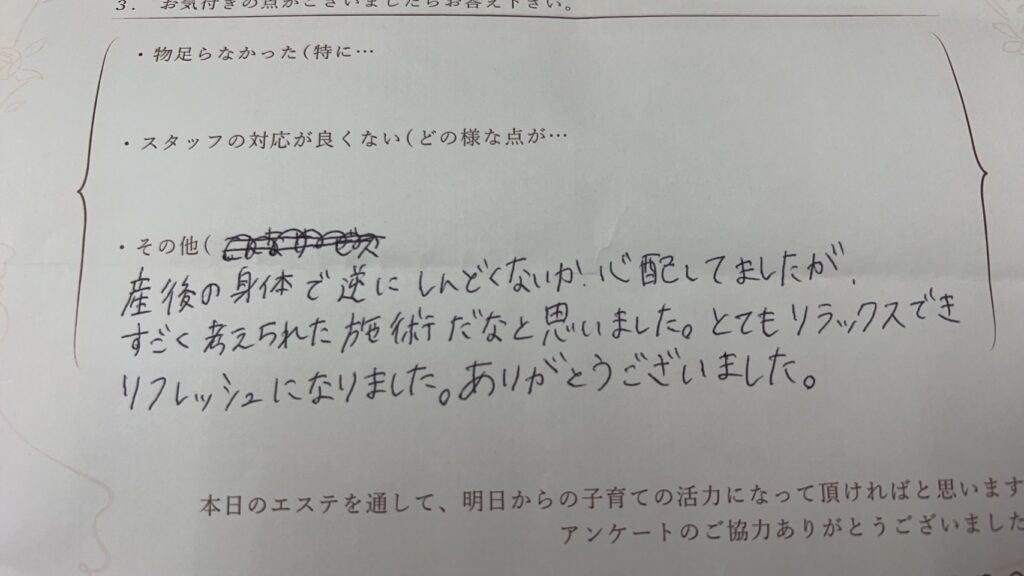 3. お気付きの点がございましたらお答え下さい。
・物足らなかった(特に…
・スタッフの対応が良くない(どの様な点が…
・その他(
産後の身体で逆にしんどくないか心配してましたが、
すごく考えられた施術だなと思いました。とてもリラックスでき
リフレッシュになりました。ありがとうございました。
本日のエステを通して、明日からの子育ての活力になって頂ければと思います
アンケートのご協力ありがとうございました